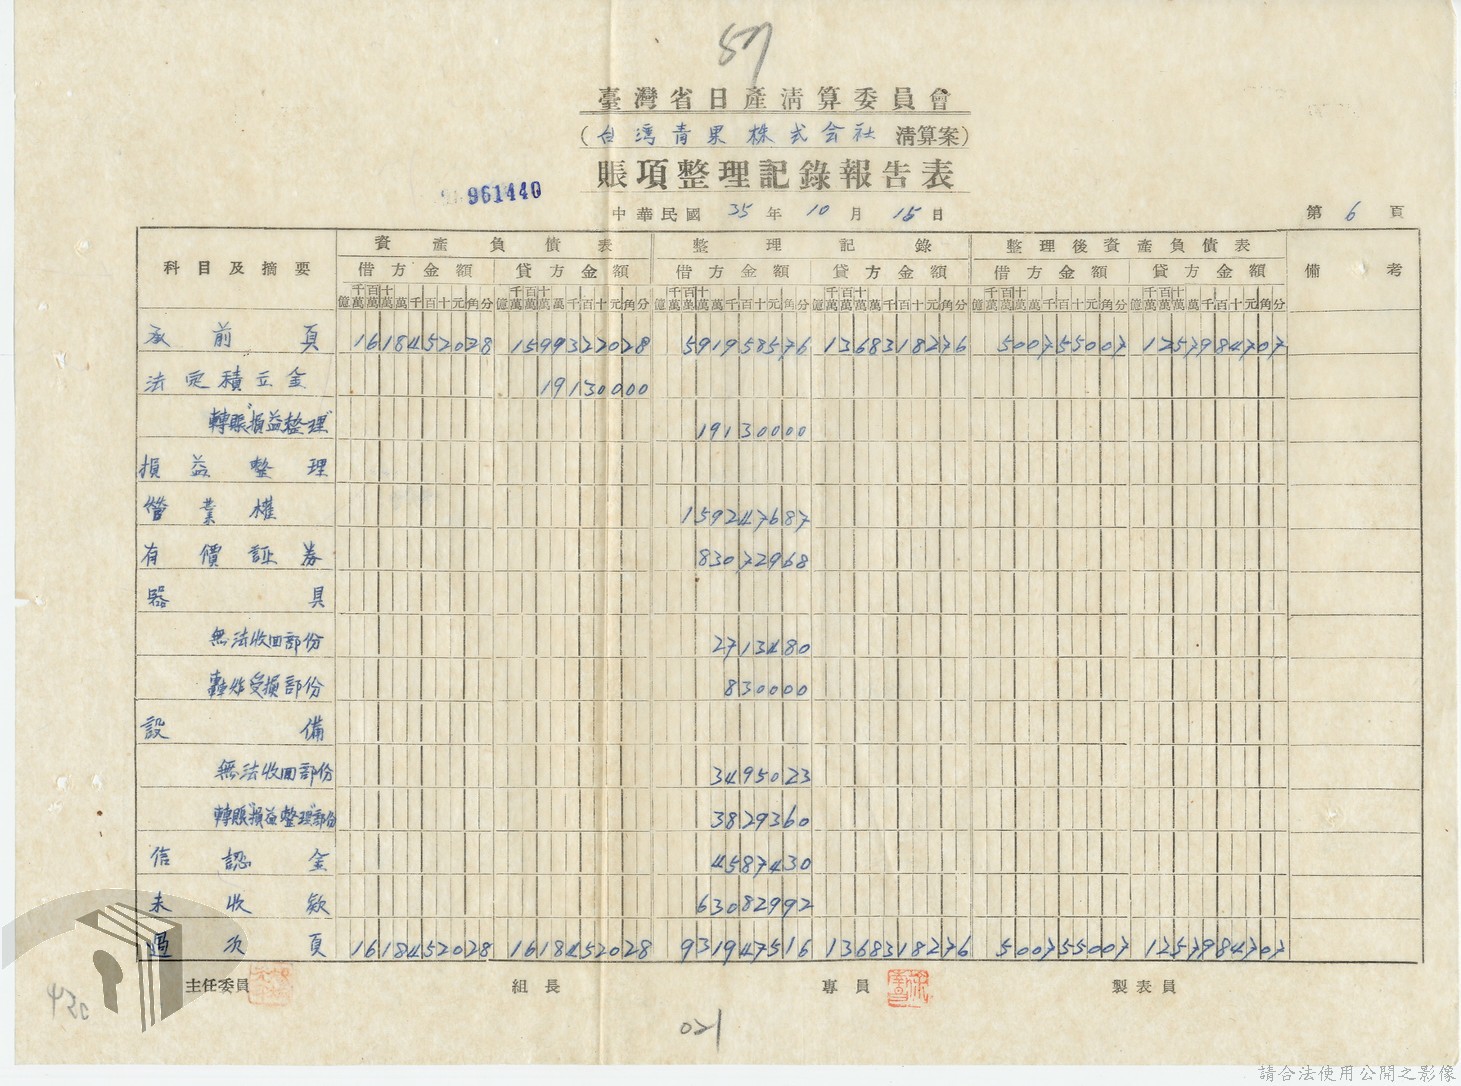 57
臺灣省日產清算委員會
(台湾青果株式会社 清算案)
賬項整理記錄報告表
961440
中華民國 35 年 10 月 15 日
第 6 頁
科目及摘要 資產負債表 整理記錄 整理後資產負債表 備考
借方金額 貸方金額 借方金額 貸方金額 借方金額 貸方金額
億千萬百萬十萬萬千百十元角分 億千萬百萬十萬萬千百十元角分 億千萬百萬十萬萬千百十元角分 億千萬百萬十萬萬千百十元角分 億千萬百萬十萬萬千百十元角分 億千萬百萬十萬萬千百十元角分
承前頁 1618452028 1599322028 591958576 1368318276 500755007 1257984707
法定積立金 19130000
轉賬"損益整理" 19130000
損益整理
營業權 159247687
有價証券 83072968
器具
無法收回部份 2713480
轟炸受損部份 830000
設備
無法收回部份 3495023
轉賬"損益整理"部份 3829360
信認金 4587430
未收款 63082992
過次頁 1618452028 1618452028 931947516 1368318276 500755007 1257984707
主任委員 組長 專員 製表員
021
請合法使用公開之影像